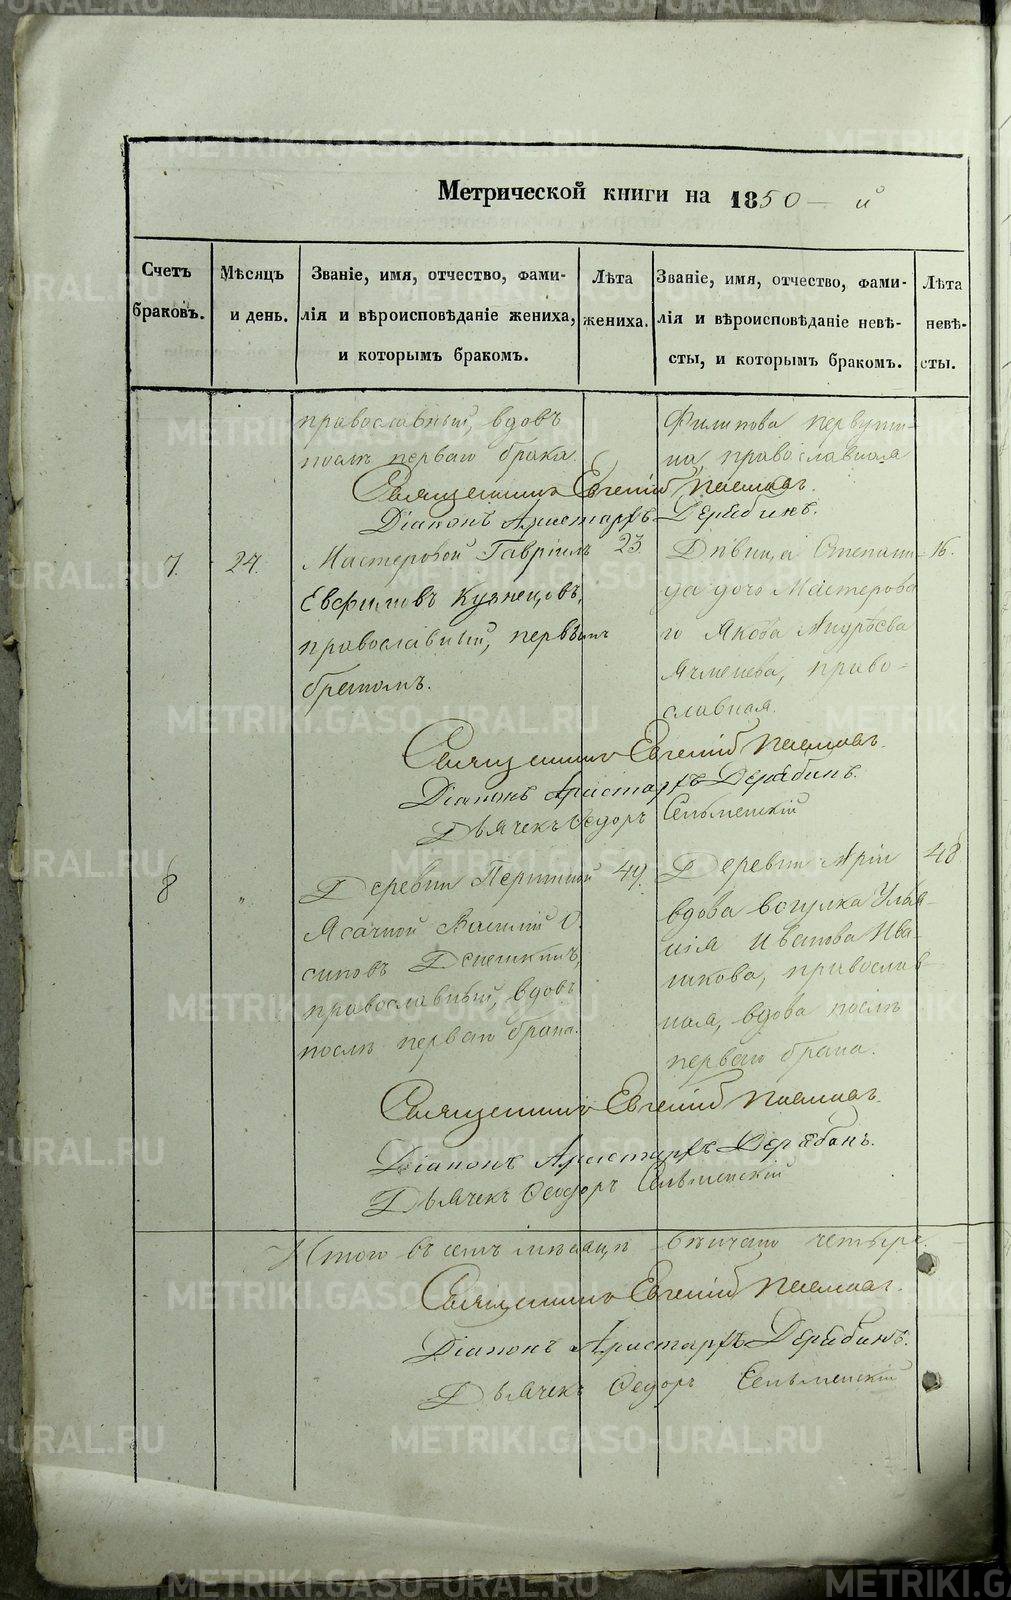 Метрической книги на 1850-й
Счетъ браковъ.
Мѣсяцъ и день.
Званіе, имя, отчество, фамилія и вѣроисповѣданіе жениха, и которымъ бракомъ.
Лѣта жениха.
Званіе, имя, отчество, фамилія и вѣроисповѣданіе невѣсты, и которымъ бракомъ.
Лѣта невѣсты.
православный, вдовъ
послѣ перваго брака
Филипова первути-
на, православная
Священникъ Евгеній
Діаконъ Аристархъ Дерябинъ.
7.
24.
Мастеровой Гавріилъ
Евфимовъ Кузнецовъ,
православный, первымъ
бракомъ.
23.
Дѣвица Степани-
да дочь Мастерова-
го Якова Андрѣева
Ячменева, право-
славная.
16.
Священникъ Евгеній
Діаконъ Аристархъ Дерябинъ.
Дьячекъ Ѳедоръ Сельменскій
8
"
Деревни
Ясачной Василій О-
сиповъ
православный, вдовъ
послѣ перваго брака.
49.
Деревни
вдова вогулка Улья-
нія Иванова Ива-
шкова, православ-
ная, вдова послѣ
перваго брака.
48
Священникъ Евгеній
Діаконъ Аристархъ Дерябинъ.
Дьячекъ Ѳеодоръ Сельменскій
Итого въ семъ мѣсяцѣ вѣнчано четыре.
Священникъ Евгеній
Діаконъ Аристархъ Дерябинъ.
Дьячекъ Ѳедоръ Сельменскій
METRIKI.GASO-URAL.RU